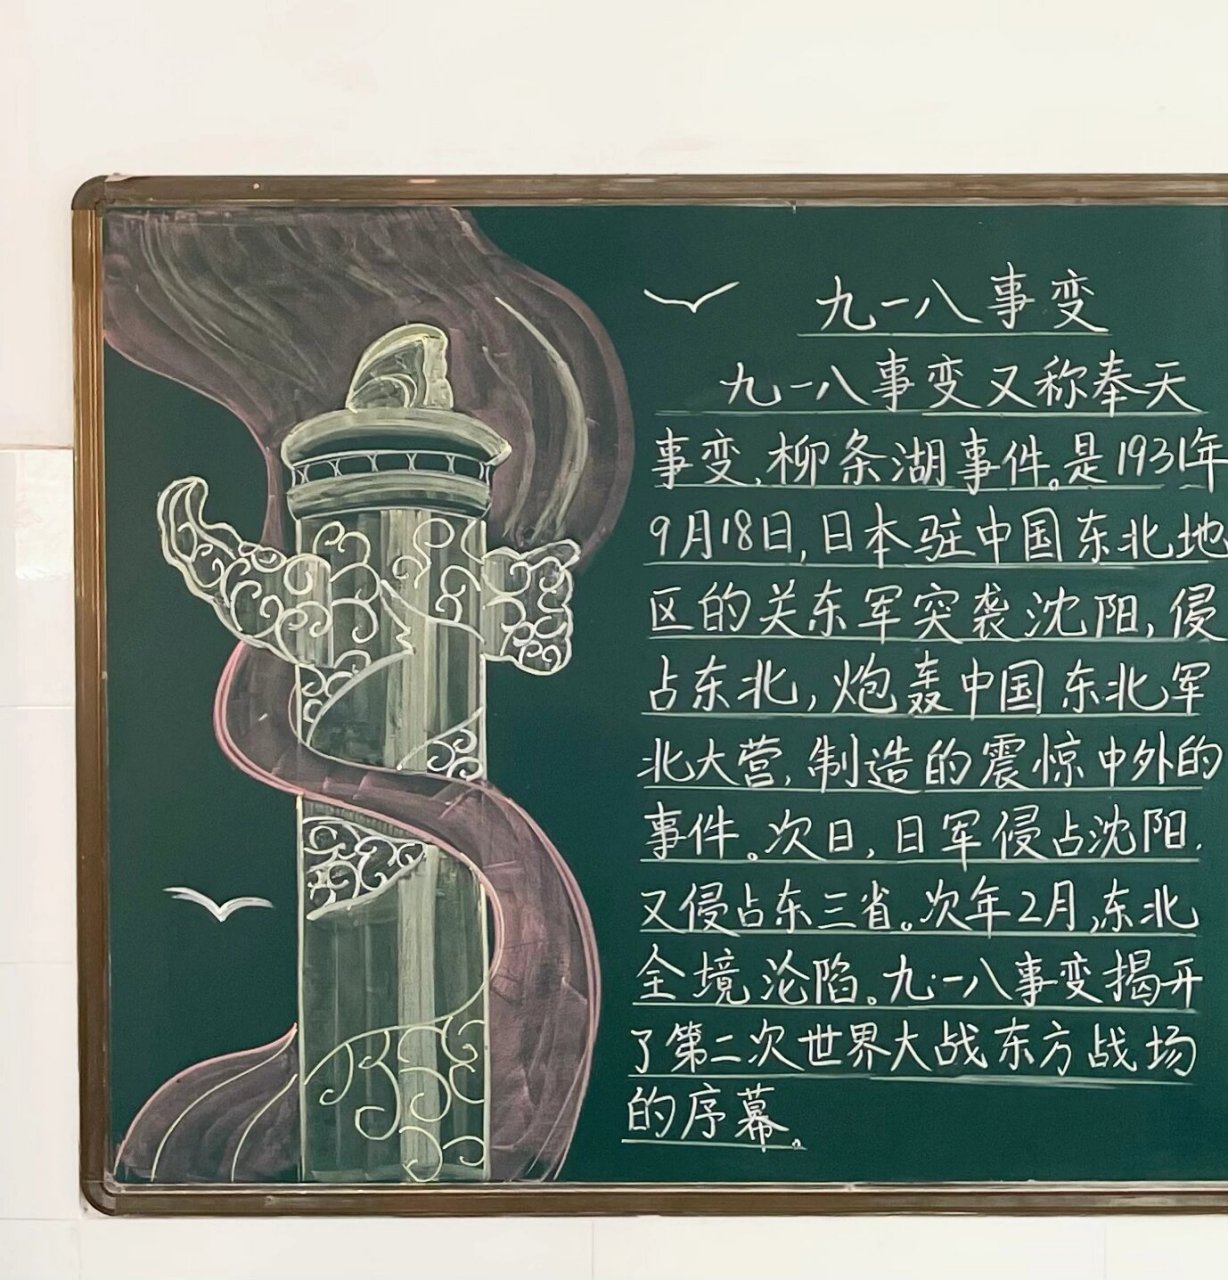 九一八事变
九一八事变又称奉天
事变,柳条湖事件。是1931年
9月18日,日本驻中国东北地
区的关东军突袭沈阳,侵
占东北,炮轰中国东北军
北大营,制造的震惊中外的
事件。次日,日军侵占沈阳.
又侵占东三省。次年2月,东北
全境沦陷。九一八事变揭开
了第二次世界大战东方战场
的序幕。